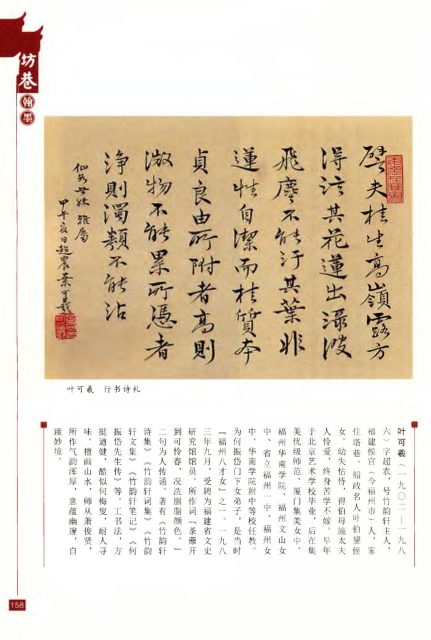 坊巷
翰墨
譬夫桂生高嶺露方
得泫其花蓮出渌波
飛塵不能汙其葉非
蓮性自潔而桂質本
貞良由所附者高則
微物不能累所憑者
淨則濁類不能沾
雅屬
甲午
日超農葉可羲
叶可羲 行书诗札
叶可羲（一九〇二—一九八
六）字超农，号竹韵轩主人，
福建侯官（今福州市）人，家
住塔巷。船政名人叶伯鋆侄
女，幼失怙恃，得伯母施太夫
人怜爱，终身苦学不嫁。早年
于北京艺术学校毕业，后在集
美优级师范、厦门集美女中、
福州华南学院、福州文山女
中、省立福州一中、福州女
中、华南学院附中等校任教。
为何振岱门下女弟子，是当时
『福州八才女』之一。一九八
三年九月，受聘为福建省文史
研究馆馆员。所作词『荼蘼开
到可怜春，况洗胭脂颜色。』
二句为人传诵。著有《竹韵轩
诗集》《竹韵轩词集》《竹韵
轩文集》《竹韵轩笔记》《何
振岱先生传》等。工书法，方
挺遒健，酷似何梅叟，耐人寻
味。擅画山水，师从萧俊贤，
所作气韵浑厚，意蕴幽邃，自
臻妙境。
158